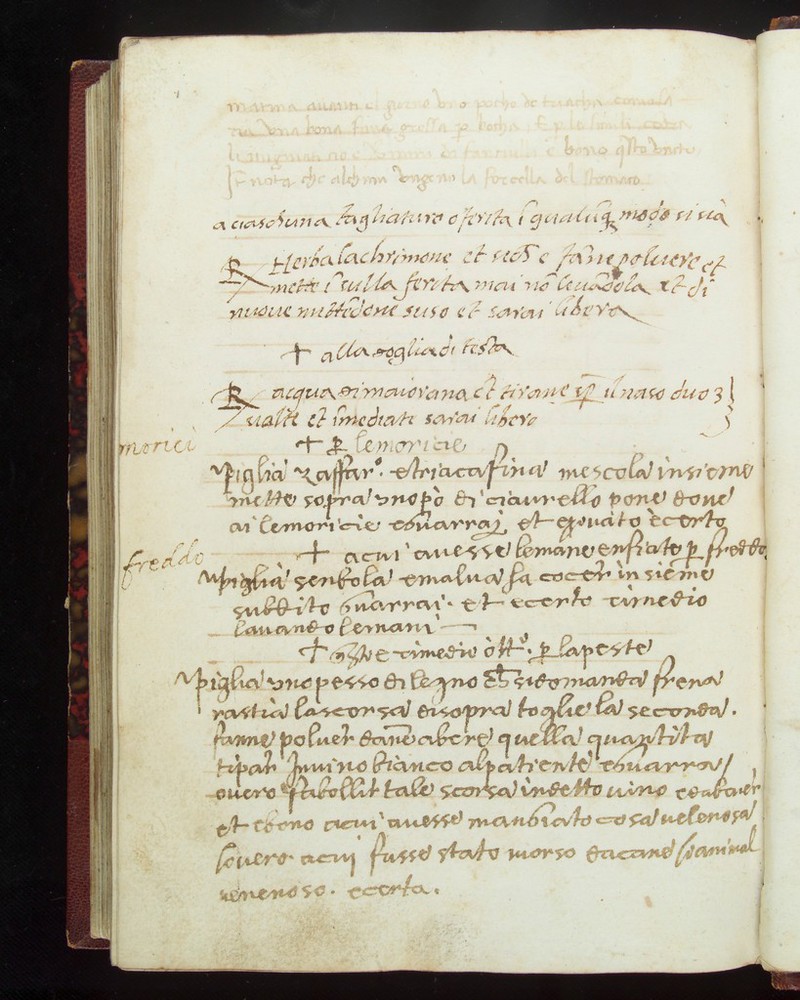 matina avanti el giorno uno pocho de triacha
una bona fava grossa per bocha
bono q̃sto
nota che alchun ungeno la forcella del stomaco
a ciaschuna tagliatura o ferita ĩ qualũq̃ modo si sia
℞ Herba lachrimone et secħ e fãne polvere et
mette ĩ sulla ferita mai nõ levãdola et di
nuove mittẽdone suso et sarai libera
+ alla doglia di testa
℞ acqua di maiorana et tirane ꝑ il naso duo 3
volte et ĩmediate sarai libero
morici
+ ꝑ le moricie
Piglia zaffarº. et triaca fina mescola insieme
mette sopra uno pò di ciavrello pone dove
ai le moricie et et provato è certo
freddo
+ a cui avesse le mane enfiate ꝑ freddo
Piglia senbola e malva fa cocer insieme
subbito guarrai. et è certo rimedio
lavando le mani
+ rimedio ottº. ꝑ la peste
Piglia uno pesso di legno si domanda frena
rastia la scorsa di sopra toglie la seconda.
fanne polver dane a bere quella quantita
ti par in vino bianco al patiente guarra/
overo fa bollir tale scorsa in detto vino
et è bono a cui avesse mangiato cosa velenosa
overo a cui fusse stato morso da cane animal
venenoso. è certa.